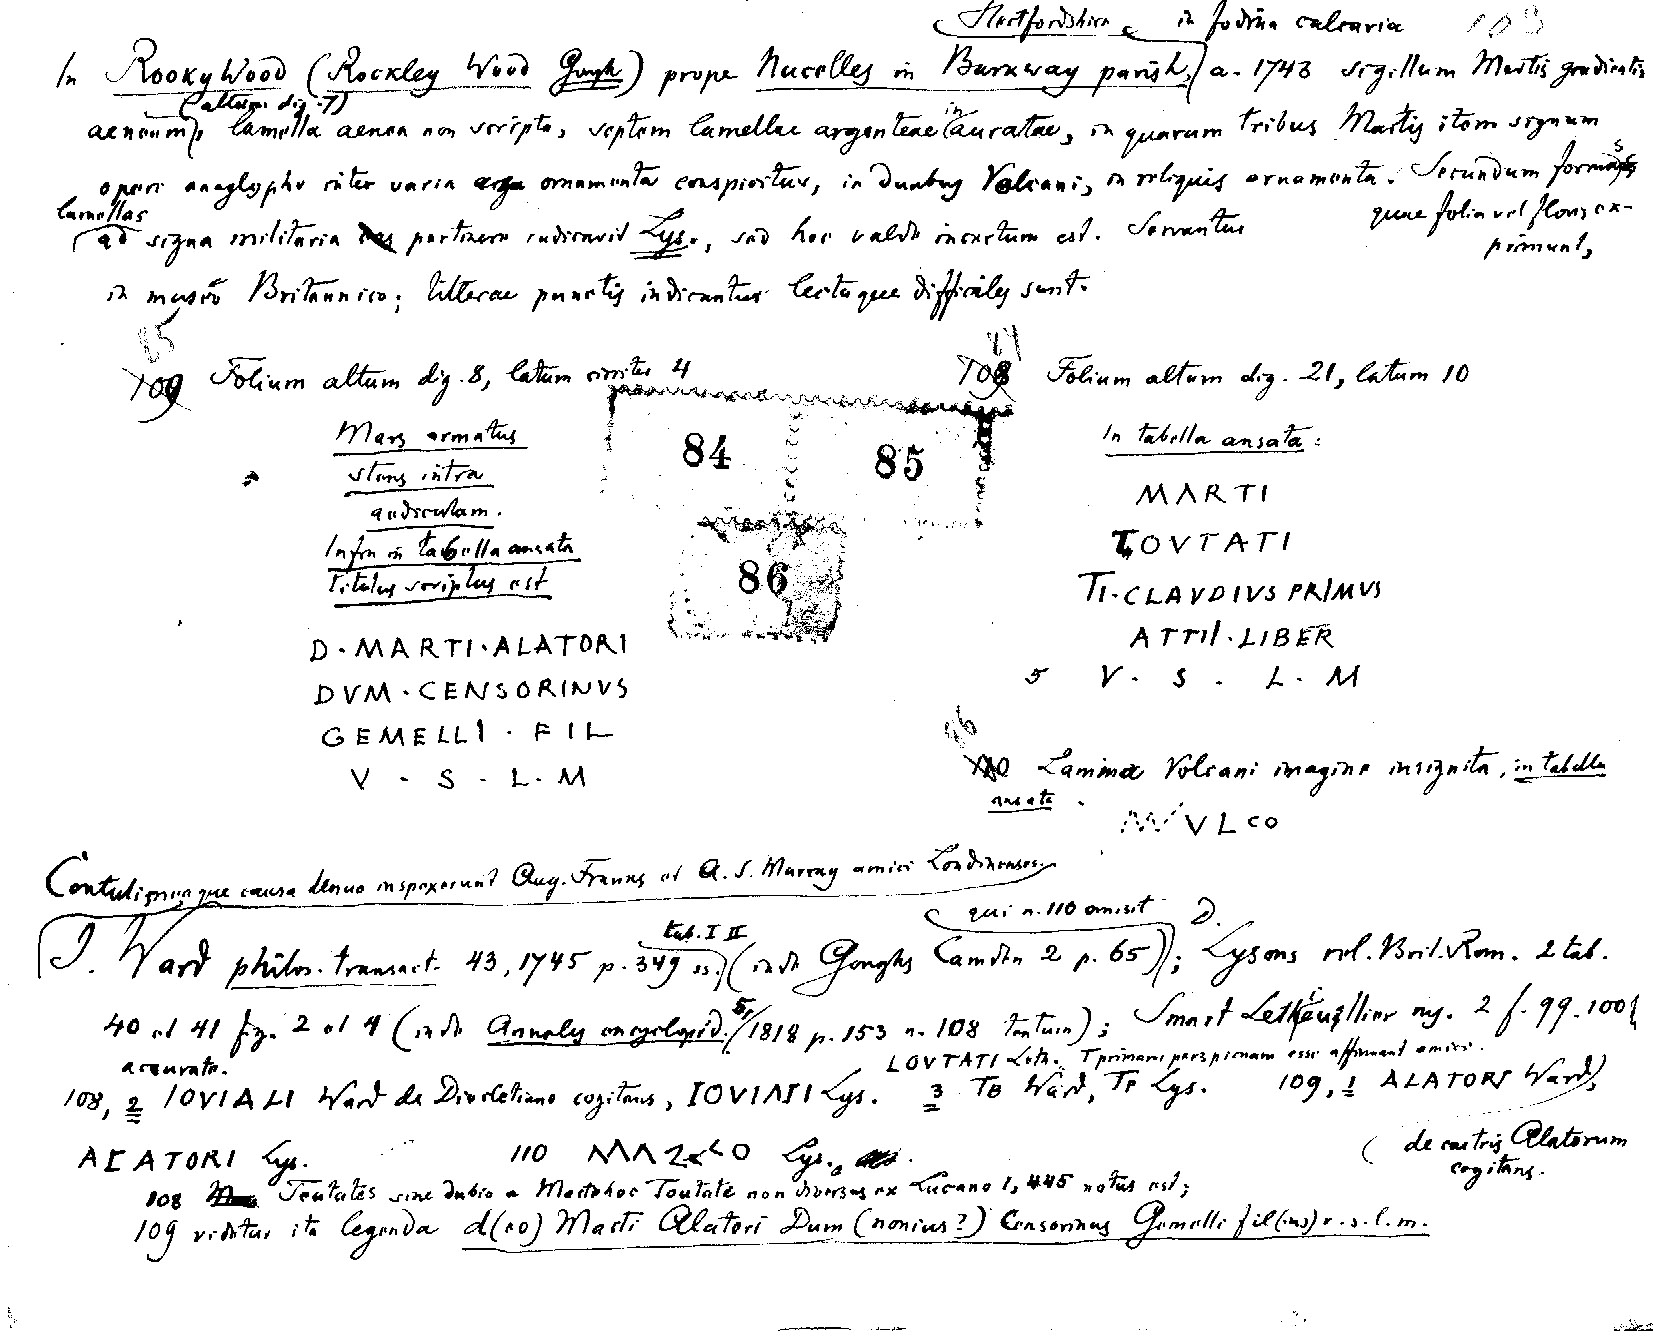 Hertfordshire in fodina calcaria 103
In Rooky Wood (Rockley Wood Gough) prope Nucelles in Barkway parish, a. 1743 sigillum Martis gradientis
(altum dig. 7)
aeneum, lamella aenea non scripta, septem lamellae argenteae inauratae, in quarum tribus Martis item signum
opere anaglypho inter varia ornamenta conspicitur, in duabus Volcani, in reliquis ornamenta. Secundum formas
quae folia vel flores ex-
priment,
lamellas
ad signa militaria pertinere iudicavit Lys., sed hoc valde incertum est. Servantur
in museo Britannico; litterae punctis indicantur lectuque difficiles sunt.
85
109 Folium altum dig. 8, latum circiter 4
Mars armatus
stans intra
aediculam.
Infra in tabella ansata
titulus scriptus est
D · MARTI · ALATORI
DVM · CENSORINVS
GEMELLI · FIL
V · S · L · M
84 85
86
84
108 Folium altum dig. 21, latum 10
In tabella ansata:
MARTI
TOVTATI
TI · CLAVDIVS PRIMVS
ATTII · LIBER
5 V · S · L · M
86
110 Lamina Volcani imagine insignita, in tabella
ansata
VLCO
Contuli; meaque causa denuo inspexerunt Aug. Franks et A. S. Murray amici Londinenses.
qui n. 110 omisit
tab. I II
J. Ward philos. transact. 43, 1745 p. 349 ss. (inde Goughs Camden 2 p. 65); D. Lysons rel. Brit. Rom. 2 tab.
40 et 41 fig. 2 et 4 (inde Annales encyclopéd. 5, 1818 p. 153 n. 108 tantum); Smart Lethieullier ms. 2 f. 99. 100
accurate.
LOVTATI Leth. T primam perspicuam esse affirmant amici.
108, 2 IOVIALI Ward de Diocletiano cogitans, IOVIATI Lys. 3 TB Ward, TP Lys. 109, 1 ALATORI Ward,
de castris Alatorum
cogitans.
AEATORI Lys. 110 Lys.
108 Teutates sine dubio a Marte hoc Toutate non diversus ex Lucano 1, 445 notus est;
109 videtur ita legenda d(eo) Marti Alatori Dum(nonius?) Censorinus Gemelli fil(ius) v. s. l. m.